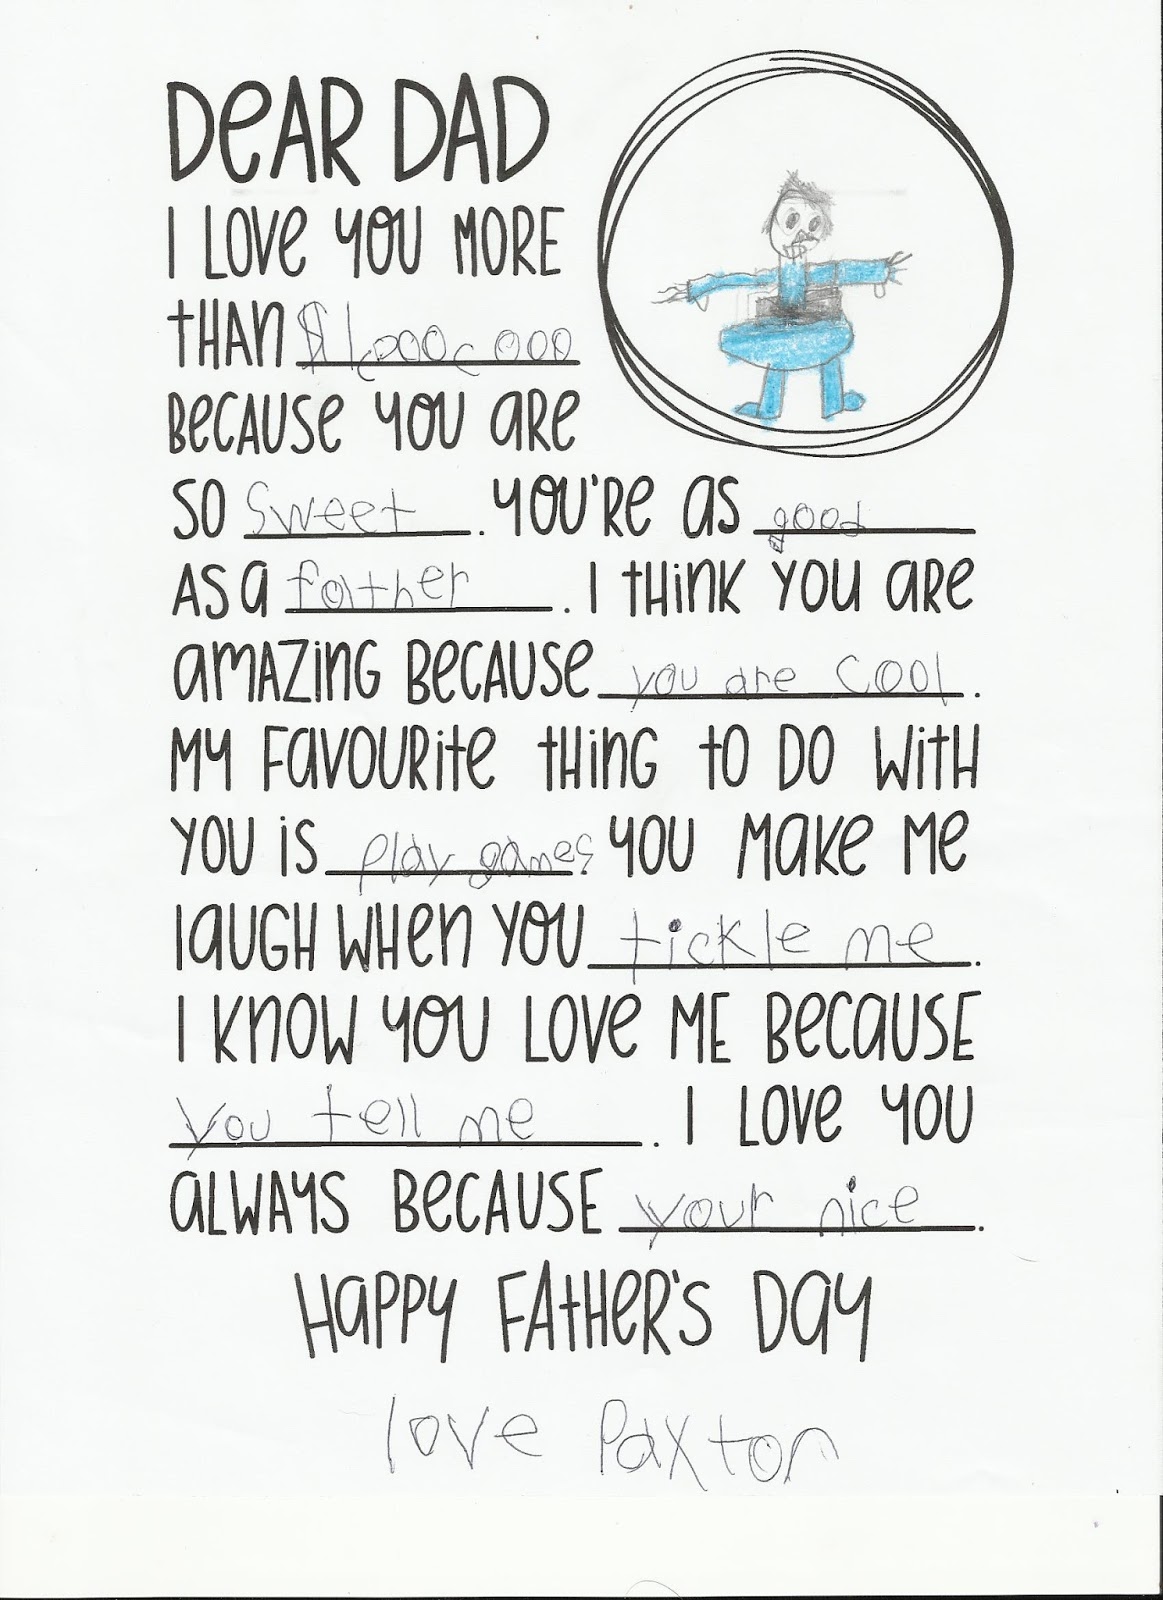 DEAR DAD
I LOVE YOU MORE
THAN $1,000,000
BECAUSE YOU ARE
SO sweet. YOU'RE AS good
AS A father. I THINK YOU ARE
AMAZING BECAUSE you are cool.
MY FAVOURITE THING TO DO WITH
YOU IS play games. YOU MAKE ME
LAUGH WHEN YOU tickle me.
I KNOW YOU LOVE ME BECAUSE
you tell me. I LOVE YOU
ALWAYS BECAUSE your nice.
HAPPY FATHER'S DAY
love Paxton